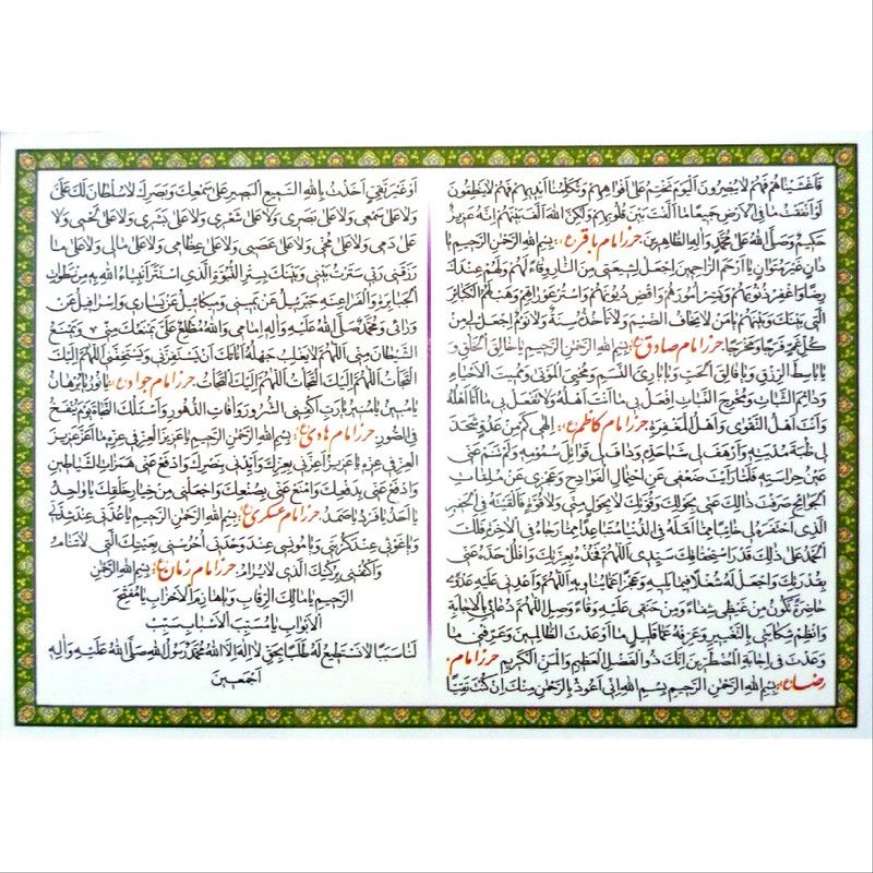 فَاَغْشَيْناهُمْ فَهُمْ لا يُبْصِرُونَ اَلْيَوْمَ نَخْتِمُ عَلى اَفْواهِهِمْ وَتُكَلِّمُنا اَيْديهِمْ فَهُمْ لا يَنْطِقُونَ
لَوْ اَنْفَقْتَ ما فِى الْاَرْضِ جَميعًا ما اَلَّفْتَ بَيْنَ قُلُوبِهِمْ وَلكِنَّ اللّهَ اَلَّفَ بَيْنَهُمْ اِنَّهُ عَزيزٌ
حَكيمٌ وَصَلَّى اللّهُ عَلى مُحَمَّدٍ وَالِهِ الطّاهِرينَ. حرز امام باقر(ع): بِسْمِ اللّهِ الرَّحْمنِ الرَّحيمِ يا
دانٍ غَيْرَ مُتَوانٍ يا اَرْحَمَ الرّاحِمينَ اِجْعَلْ لِشيعَتى مِنَ النّارِ وِقاءً لَهُمْ وَلَهُمْ عِنْدَكَ
رِضًا وَاغْفِرْ ذُنُوبَهُمْ وَيَسِّرْ اُمُورَهُمْ وَاقْضِ دُيُونَهُمْ وَاسْتُرْ عَوْراتِهِمْ وَهَبْ لَهُمُ الْكَبائِرَ
الَّتى بَيْنَكَ وَبَيْنَهُمْ يا مَنْ لا يَخافُ الضَّيْمَ وَلا تَأْخُذُهُ سِنَةٌ وَلا نَوْمٌ اِجْعَلْ لى مِنْ
كُلِّ غَمٍّ فَرَجًا وَمَخْرَجًا حرز امام صادق(ع): بِسْمِ اللّهِ الرَّحْمنِ الرَّحيمِ يا خالِقَ الْخَلْقِ وَ
يا باسِطَ الرِّزْقِ وَيا فالِقَ الْحَبِّ وَيا بارِئَ النَّسَمِ وَمُحْيِىَ الْمَوْتى وَمُميتَ الْاَحْياءِ
وَدائِمَ الثَّباتِ وَمُخْرِجَ النَّباتِ اِفْعَلْ بى ما اَنْتَ اَهْلُهُ وَلا تَفْعَلْ بى ما اَنَا اَهْلُهُ
وَاَنْتَ اَهْلُ التَّقْوى وَاَهْلُ الْمَغْفِرَةِ حرز امام كاظم(ع): اِلهى كَمْ مِنْ عَدُوٍّ شَحَذَ
لى ظُبَةَ مُدْيَتِهِ وَاَرْهَفَ لى شَبا حَدِّهِ وَدافَ لى قَواتِلَ سُمُومِهِ وَلَمْ تَنَمْ عَنّى
عَيْنُ حِراسَتِهِ فَلَمّا رَاَيْتَ ضَعْفى عَنِ احْتِمالِ الْفَوادِحِ وَعَجْزى عَنْ مُلِمّاتِ
الْجَوائِحِ صَرَفْتَ ذلِكَ عَنّى بِحَوْلِكَ وَقُوَّتِكَ لا بِحَوْلٍ مِنّى وَلا قُوَّةٍ فَاَلْقَيْتَهُ فِى الْحَفيرِ
الَّذِى احْتَفَرَهُ لى خائِبًا مِمّا اَمَّلَهُ فِى الدُّنْيا مُتَباعِدًا مِمّا رَجاهُ فِى الْاخِرَةِ فَلَكَ
الْحَمْدُ عَلى ذلِكَ قَدْرَ اسْتِحْقاقِكَ سَيِّدى اَللّهُمَّ فَخُذْهُ بِعِزَّتِكَ وَافْلُلْ حَدَّهُ عَنّى
بِقُدْرَتِكَ وَاجْعَلْ لَهُ شُغْلًا فيما يَليهِ وَعَجْزًا عَمّا يُناويهِ اَللّهُمَّ وَاَعْدِنى عَلَيْهِ عَدْوىً
حاضِرَةً تَكُونُ مِنْ غَيْظى شِفاءً وَمِنْ حَنَقى عَلَيْهِ وَفاءً وَصِلِ اللّهُمَّ دُعائى بِالْاِجابَةِ
وَانْظِمْ شِكايَتى بِالتَّغْييرِ وَعَرِّفْهُ عَمّا قَليلٍ ما اَوْعَدْتَ الظّالِمينَ وَعَرِّفْنى ما
وَعَدْتَ فى اِجابَةِ الْمُضْطَرّينَ اِنَّكَ ذُو الْفَضْلِ الْعَظيمِ وَالْمَنِّ الْكَريمِ حرز امام
رضا(ع): بِسْمِ اللّهِ الرَّحْمنِ الرَّحيمِ بِسْمِ اللّهِ اِنّى اَعُوذُ بِالرَّحْمنِ مِنْكَ اِنْ كُنْتَ تَقِيًّا
اَوْ غَيْرَ تَقِىٍّ اَخَذْتُ بِاللّهِ السَّميعِ الْبَصيرِ عَلى سَمْعِكَ وَبَصَرِكَ لا سُلْطانَ لَكَ عَلَىَّ
وَلا عَلى سَمْعى وَلا عَلى بَصَرى وَلا عَلى شَعْرى وَلا عَلى بَشَرى وَلا عَلى لَحْمى وَلا
عَلى دَمى وَلا عَلى مُخّى وَلا عَلى عَصَبى وَلا عَلى عِظامى وَلا عَلى مالى وَلا عَلى ما
رَزَقَنى رَبّى سَتَرْتُ بَيْنى وَبَيْنَكَ بِسِتْرِ النُّبُوَّةِ الَّذِى اسْتَتَرَ اَنْبِياءُ اللّهِ بِهِ مِنْ سَطَواتِ
الْجَبابِرَةِ وَالْفَراعِنَةِ جَبْرَئيلُ عَنْ يَمينى وَميكائيلُ عَنْ يَسارى وَاِسْرافيلُ عَنْ
وَرائى وَمُحَمَّدٌ صَلَّى اللّهُ عَلَيْهِ وَالِهِ اَمامى وَاللّهُ مُطَّلِعٌ عَلَىَّ يَمْنَعُكَ مِنّى وَيَمْنَعُ
الشَّيْطانَ مِنّى اَللّهُمَّ لا يَغْلِبْ جَهْلُهُ اَناتَكَ اَنْ يَسْتَفِزَّنى وَيَسْتَخِفَّنى اَللّهُمَّ اِلَيْكَ
الْتَجَأْتُ اَللّهُمَّ اِلَيْكَ الْتَجَأْتُ اَللّهُمَّ اِلَيْكَ الْتَجَأْتُ. حرز امام جواد(ع): يا نُورُ يا بُرْهانُ
يا مُبينُ يا مُنيرُ يا رَبِّ اكْفِنِى الشُّرُورَ وَافاتِ الدُّهُورِ وَاَسْئَلُكَ النَّجاةَ يَوْمَ يُنْفَخُ
فِى الصُّورِ. حرز امام هادى(ع): بِسْمِ اللّهِ الرَّحْمنِ الرَّحيمِ يا عَزيزَ الْعِزِّ فى عِزِّهِ ما اَعَزَّ عَزيزَ
الْعِزِّ فى عِزِّهِ يا عَزيزُ اَعِزَّنى بِعِزِّكَ وَاَيِّدْنى بِنَصْرِكَ وَادْفَعْ عَنّى هَمَزاتِ الشَّياطينِ
وَادْفَعْ عَنّى بِدَفْعِكَ وَامْنَعْ عَنّى بِصُنْعِكَ وَاجْعَلْنى مِنْ خِيارِ خَلْقِكَ يا واحِدُ
يا اَحَدُ يا فَرْدُ يا صَمَدُ. حرز امام عسكرى(ع): بِسْمِ اللّهِ الرَّحْمنِ الرَّحيمِ يا عُدَّتى عِنْدَ شِدَّتى
وَيا غَوْثى عِنْدَ كُرْبَتى وَيا مُونِسى عِنْدَ وَحْدَتى اُحْرُسْنى بِعَيْنِكَ الَّتى لا تَنامُ
وَاكْنُفْنى بِرُكْنِكَ الَّذى لا يُرامُ. حرز امام زمان(ع): بِسْمِ اللّهِ الرَّحْمنِ
الرَّحيمِ يا مالِكَ الرِّقابِ وَيا هازِمَ الْاَحْزابِ يا مُفَتِّحَ
الْاَبْوابِ يا مُسَبِّبَ الْاَسْبابِ سَبِّبْ
لَنا سَبَبًا لا نَسْتَطيعُ لَهُ طَلَبًا بِحَقِّ لا اِلهَ اِلَّا اللّهُ مُحَمَّدٌ رَسُولُ اللّهِ صَلَّى اللّهُ عَلَيْهِ وَالِهِ
اَجْمَعينَ